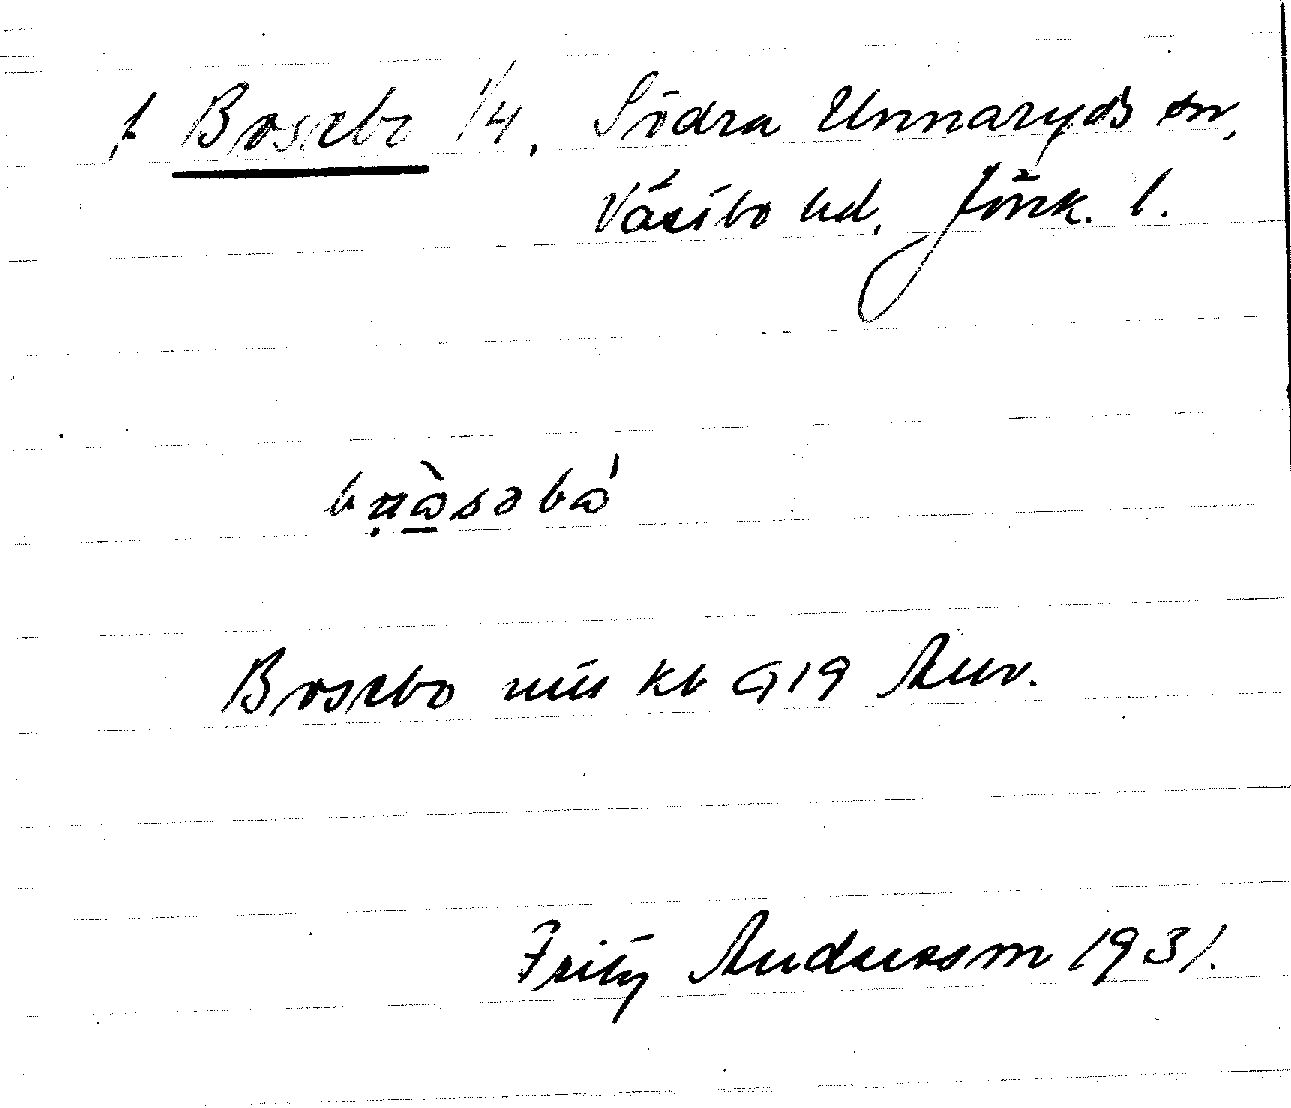 f Bosebo 1/4, Södra Unnaryds sn,
Västbo hd, Jönk. l.
Bosebo min kb 919 Anv.
Fritz Andersson 1931.